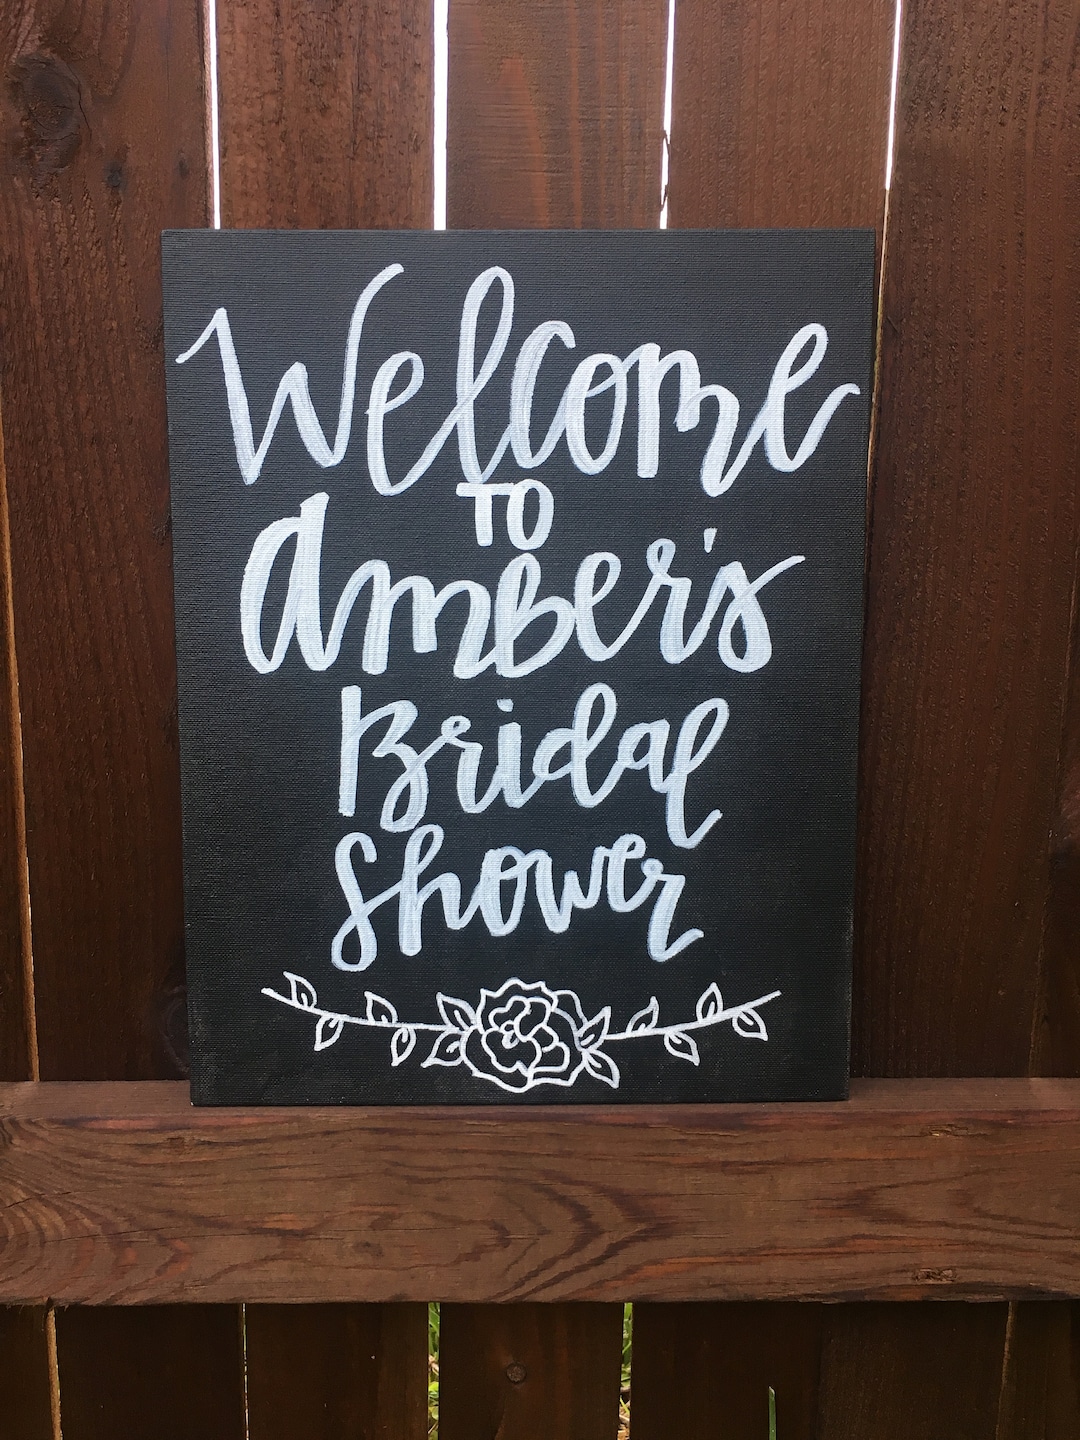 Welcome
TO
Amber's
Bridal
Shower